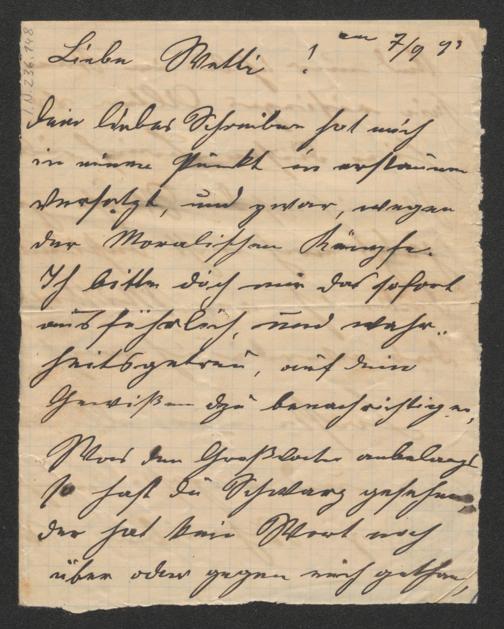 I.N. 236.148
am 7/9 93
Liebe Wetti!
Dein liebes Schreiben hat mich
in einem Punkt in erstaunen
versetzt, und zwar, wegen
der Moralischen Kämpfe.
Ich bitte dich mir das sofort
ausführlich, und wahr-
heitsgetreu, auf dein
Gewißen zu benachrichtigen,
Was den Großvater anbelangt
so hast du Schwarz gesehen,
der hat kein Wort noch
über oder gegen mich gethan,